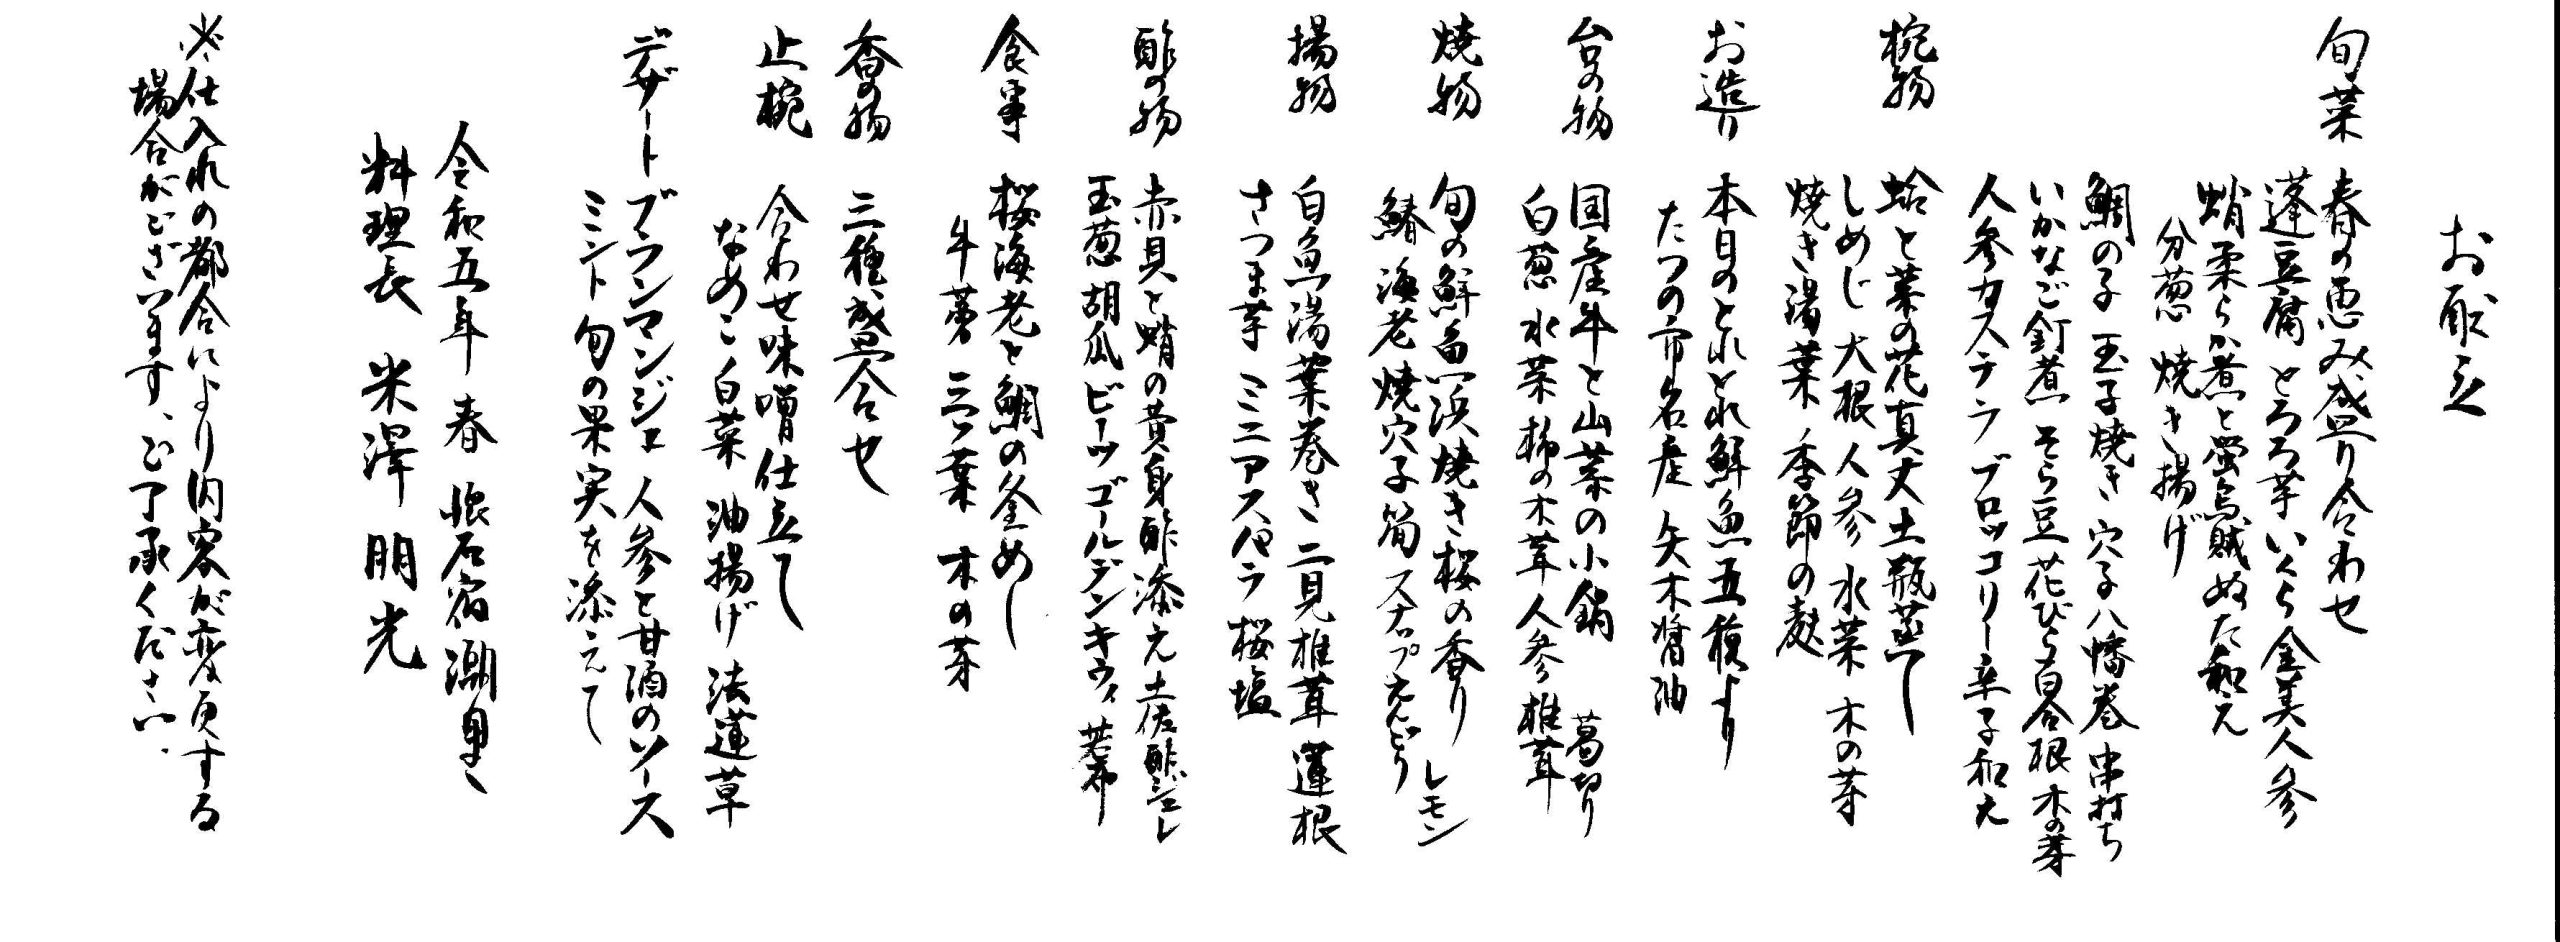 お献立
旬菜 春の恵み盛り合わせ
蓬豆腐 とろろ芋 いくら 金美人参
蛸柔らか煮と蛍烏賊ぬた和え
分葱 焼き揚げ
鯛の子 玉子焼き 穴子八幡巻 串打ち
いかなご釘煮 そら豆 花びら百合根 木の芽
人参カステラ ブロッコリー辛子和え
椀物 蛤と菜の花真丈土瓶蒸し
しめじ 大根 人参 水菜 木の芽
焼き湯葉 季節の麩
お造り 本日のとれとれ鮮魚五種より
たつの市名産 矢木醤油
台の物 国産牛と山菜の小鍋 葛切り
白葱 水菜 柿の木茸 人参 椎茸
焼物 旬の鮮魚浜焼き桜の香り レモン
鰆 海老 焼穴子 筍 スナップえんどう
揚物 白魚湯葉巻き 二見椎茸 蓮根
さつま芋 ミニアスパラ 桜塩
酢の物 赤貝と蛸の黄身酢添え 土佐酢ジュレ
玉葱 胡瓜 ビーツ ゴールデンキウィ 若布
食事 桜海老と鯛の釜めし
牛蒡 三つ葉 木の芽
香の物 三種盛合せ
止椀 合わせ味噌仕立て
なめこ 白菜 油揚げ 法蓮草
デザート ブランマンジェ 人参と甘酒のソース
ミント 旬の果実を添えて
令和五年 春 懐石宿 潮里
料理長 米澤 朋光
※仕入れの都合により内容が変更する
場合がございます、ご了承ください、